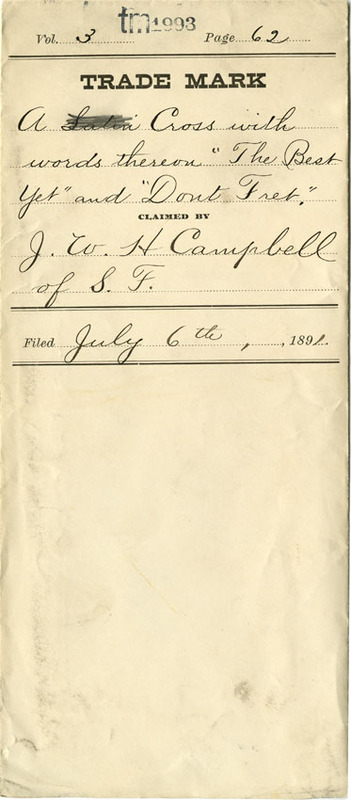 tm1993
Vol. 3 Page 62
TRADE MARK
A Latin Cross with
words thereon "The Best
Yet" and "Dont Fret."
CLAIMED BY
J. W. H Campbell
of S. F.
Filed July 6th, 1891.